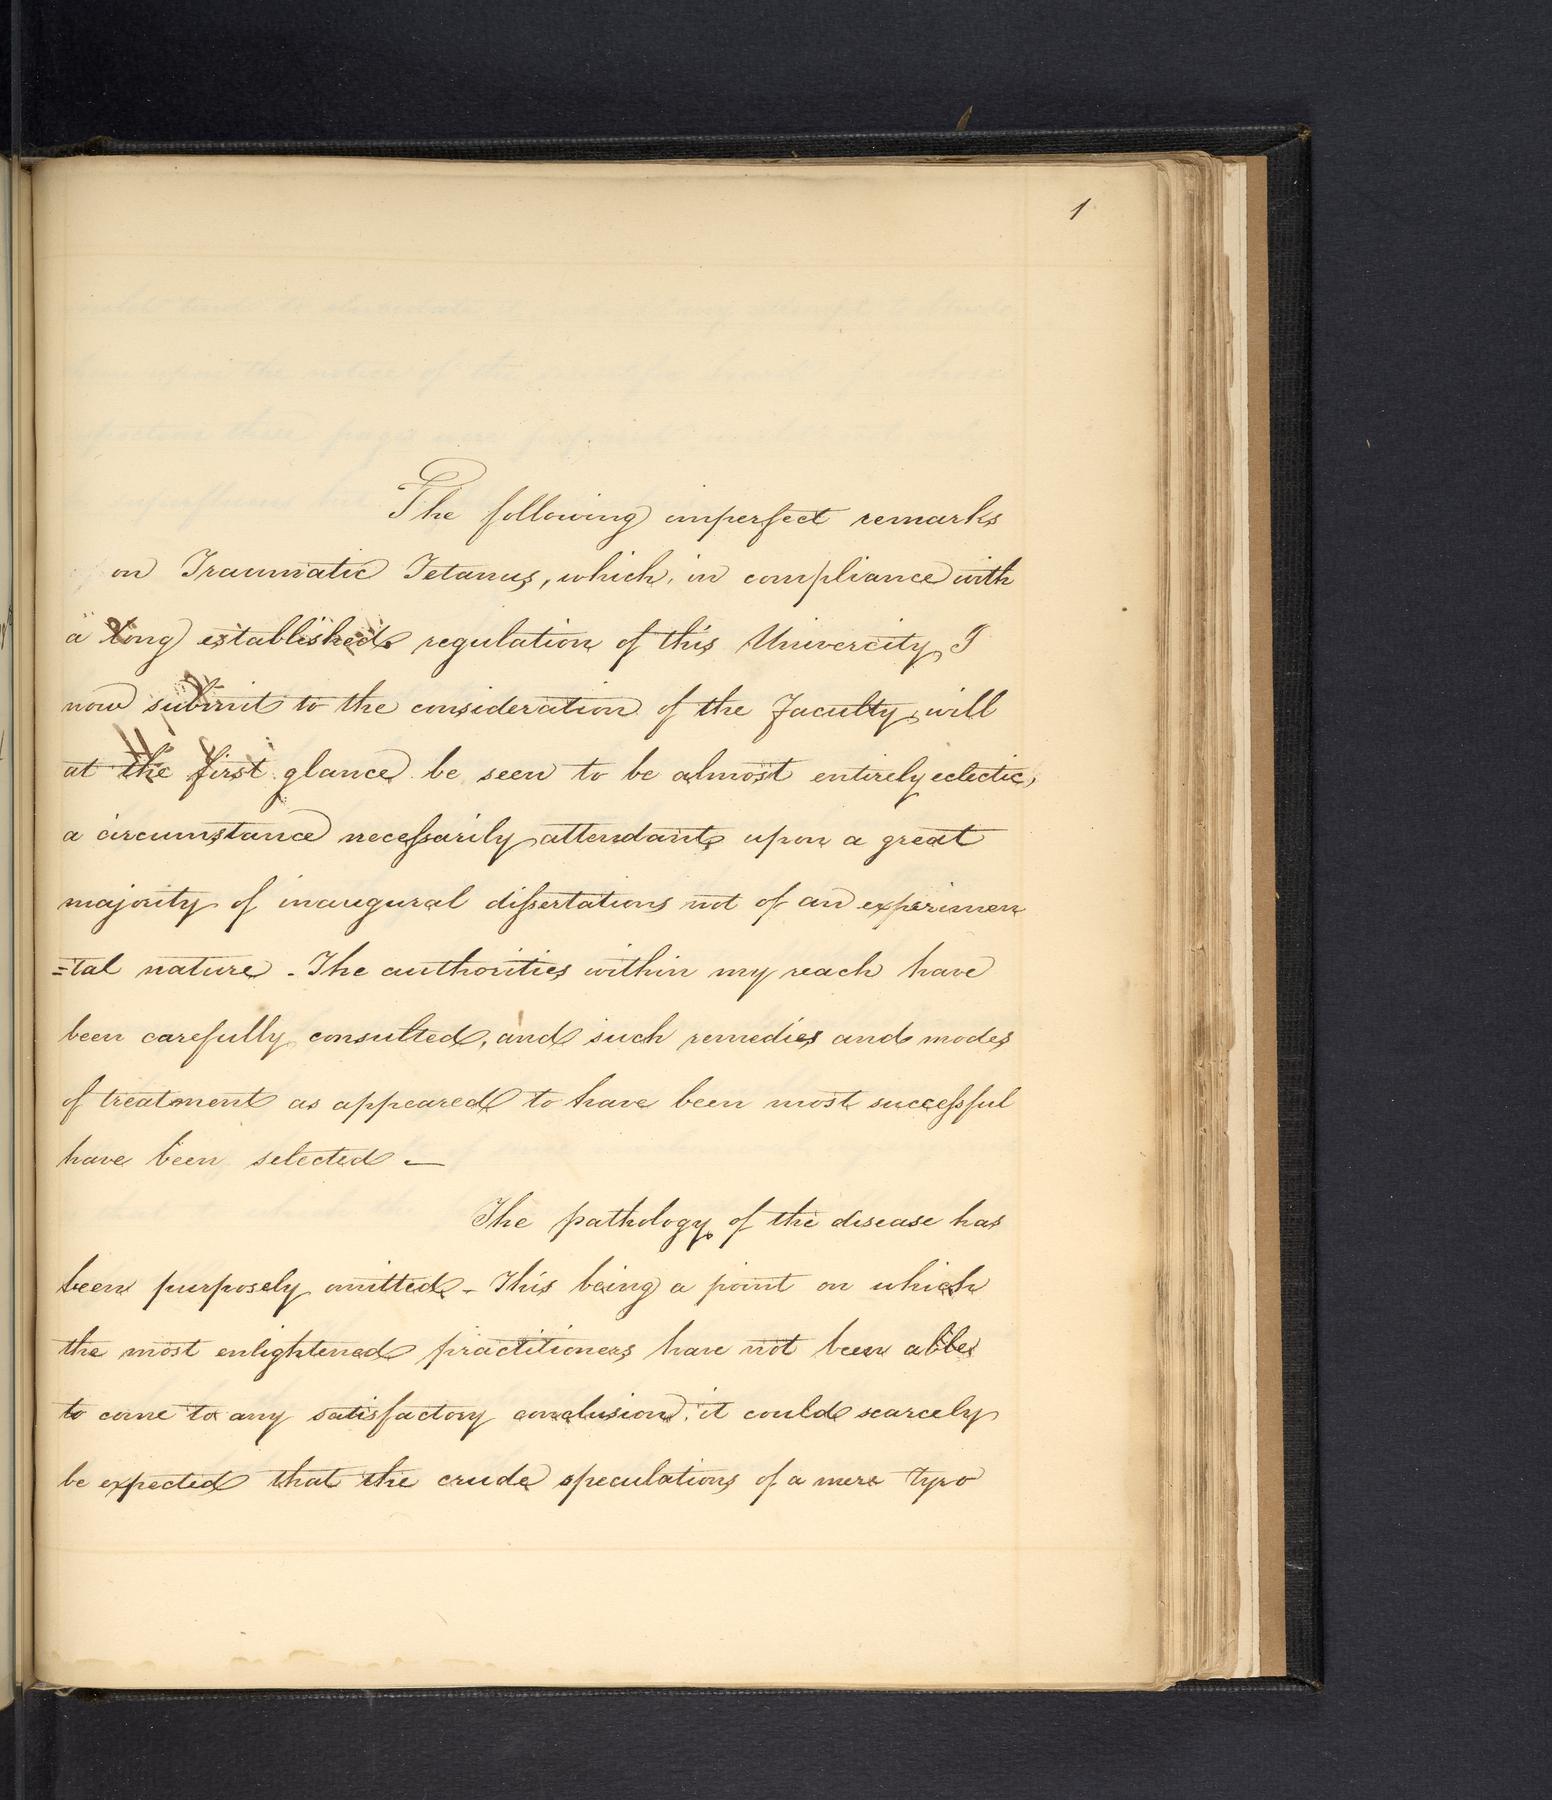 1
The following imperfect remarks
on Traumatic Tetanus, which, in compliance with
a long established regulation of this Univercity, I
now submit to the consideration of the Faculty, will
at the first glance be seen to be almost entirely eclectic,
a circumstance necessarily attendant upon a great
majority of inaugural dissertations not of an experimen
=tal nature - The authorities within my reach have
been carefully consulted, and such remedies and modes
of treatment as appeared to have been most successful
have been selected —
The pathology of the disease has
been purposely omitted - This being a point on which
the most enlightened practitioners have not been able
to come to any satisfactory conclusion, it could scarcely
be expected that the crude speculations of a mere tyro